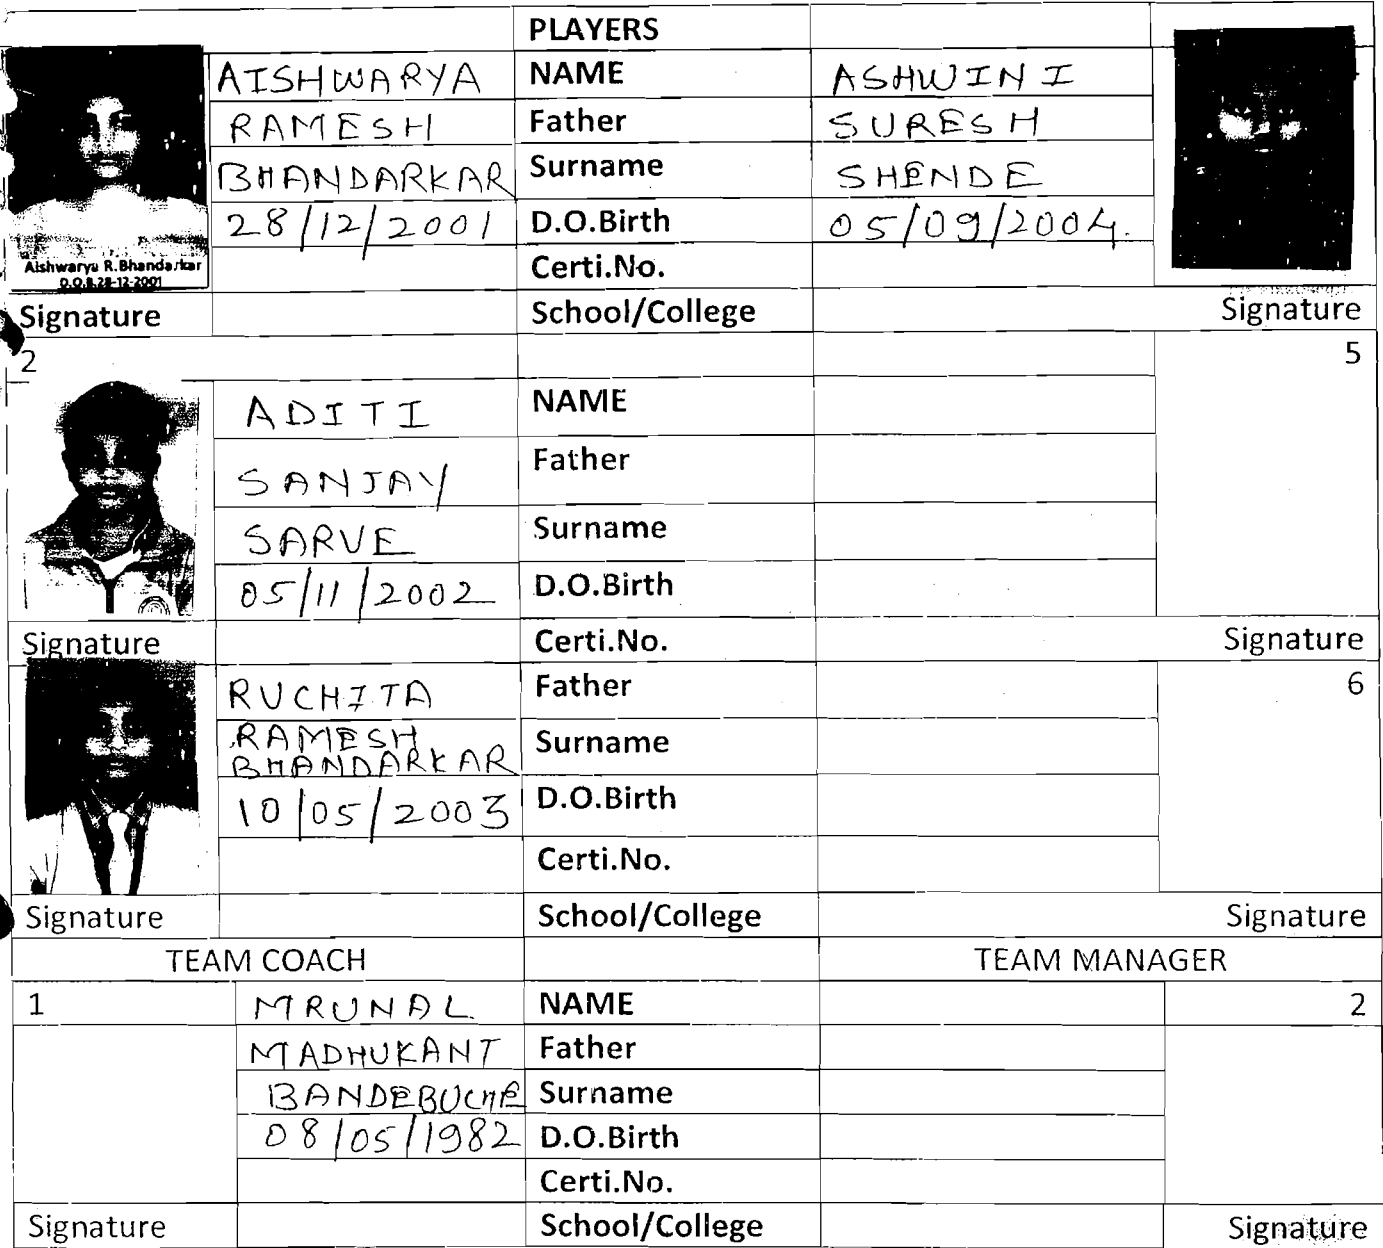 PLAYERS
AISHWARYA NAME ASHWINI
RAMESH Father SURESH
BHANDARKAR Surname SHENDE
28/12/2001 D.O.Birth 05/09/2004.
Aishwarya R.Bhandarkar Certi.No.
D.O.B.28-12-2001
Signature School/College Signature
2 5
ADITI NAME
SANJAY Father
SARVE Surname
05/11/2002 D.O.Birth
Signature Certi.No. Signature
RUCHITA Father 6
RAMESH Surname
BHANDARKAR
10/05/2003 D.O.Birth
Certi.No.
Signature School/College Signature
TEAM COACH TEAM MANAGER
1 MRUNAL NAME 2
MADHUKANT Father
BANDEBUCHE Surname
08/05/1982 D.O.Birth
Certi.No.
Signature School/College Signature